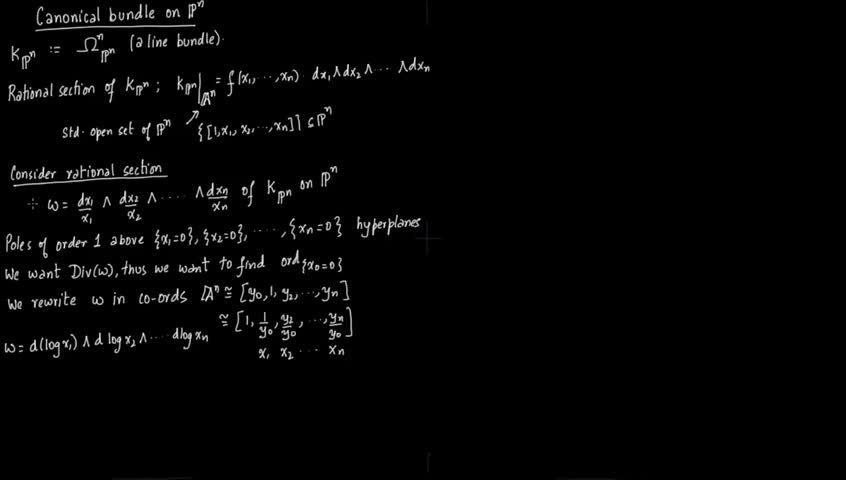 Canonical bundle on ℙⁿ
K_ℙⁿ := Ωⁿ_ℙⁿ (a line bundle).
Rational section of K_ℙⁿ ; K_ℙⁿ|_𝔸ⁿ = f(x₁, ..., xₙ) · dx₁ ∧ dx₂ ∧ ... ∧ dxₙ
std. open set of ℙⁿ ↗ {[1, x₁, x₂, ..., xₙ]} ⊆ ℙⁿ
Consider rational section
÷ ω = dx₁/x₁ ∧ dx₂/x₂ ∧ ..... ∧ dxₙ/xₙ of K_ℙⁿ on ℙⁿ
Poles of order 1 above {x₁=0}, {x₂=0}, ....., {xₙ=0} hyperplanes
We want Div(ω), thus we want to find ord_{x₀=0}
We rewrite ω in co-ords 𝔸ⁿ ≅ [y₀, 1, y₂, ..., yₙ]
≅ [1, 1/y₀, y₂/y₀, ..., yₙ/y₀]
ω = d(log x₁) ∧ d log x₂ ∧ .... d log xₙ
x₁ x₂ ... xₙ